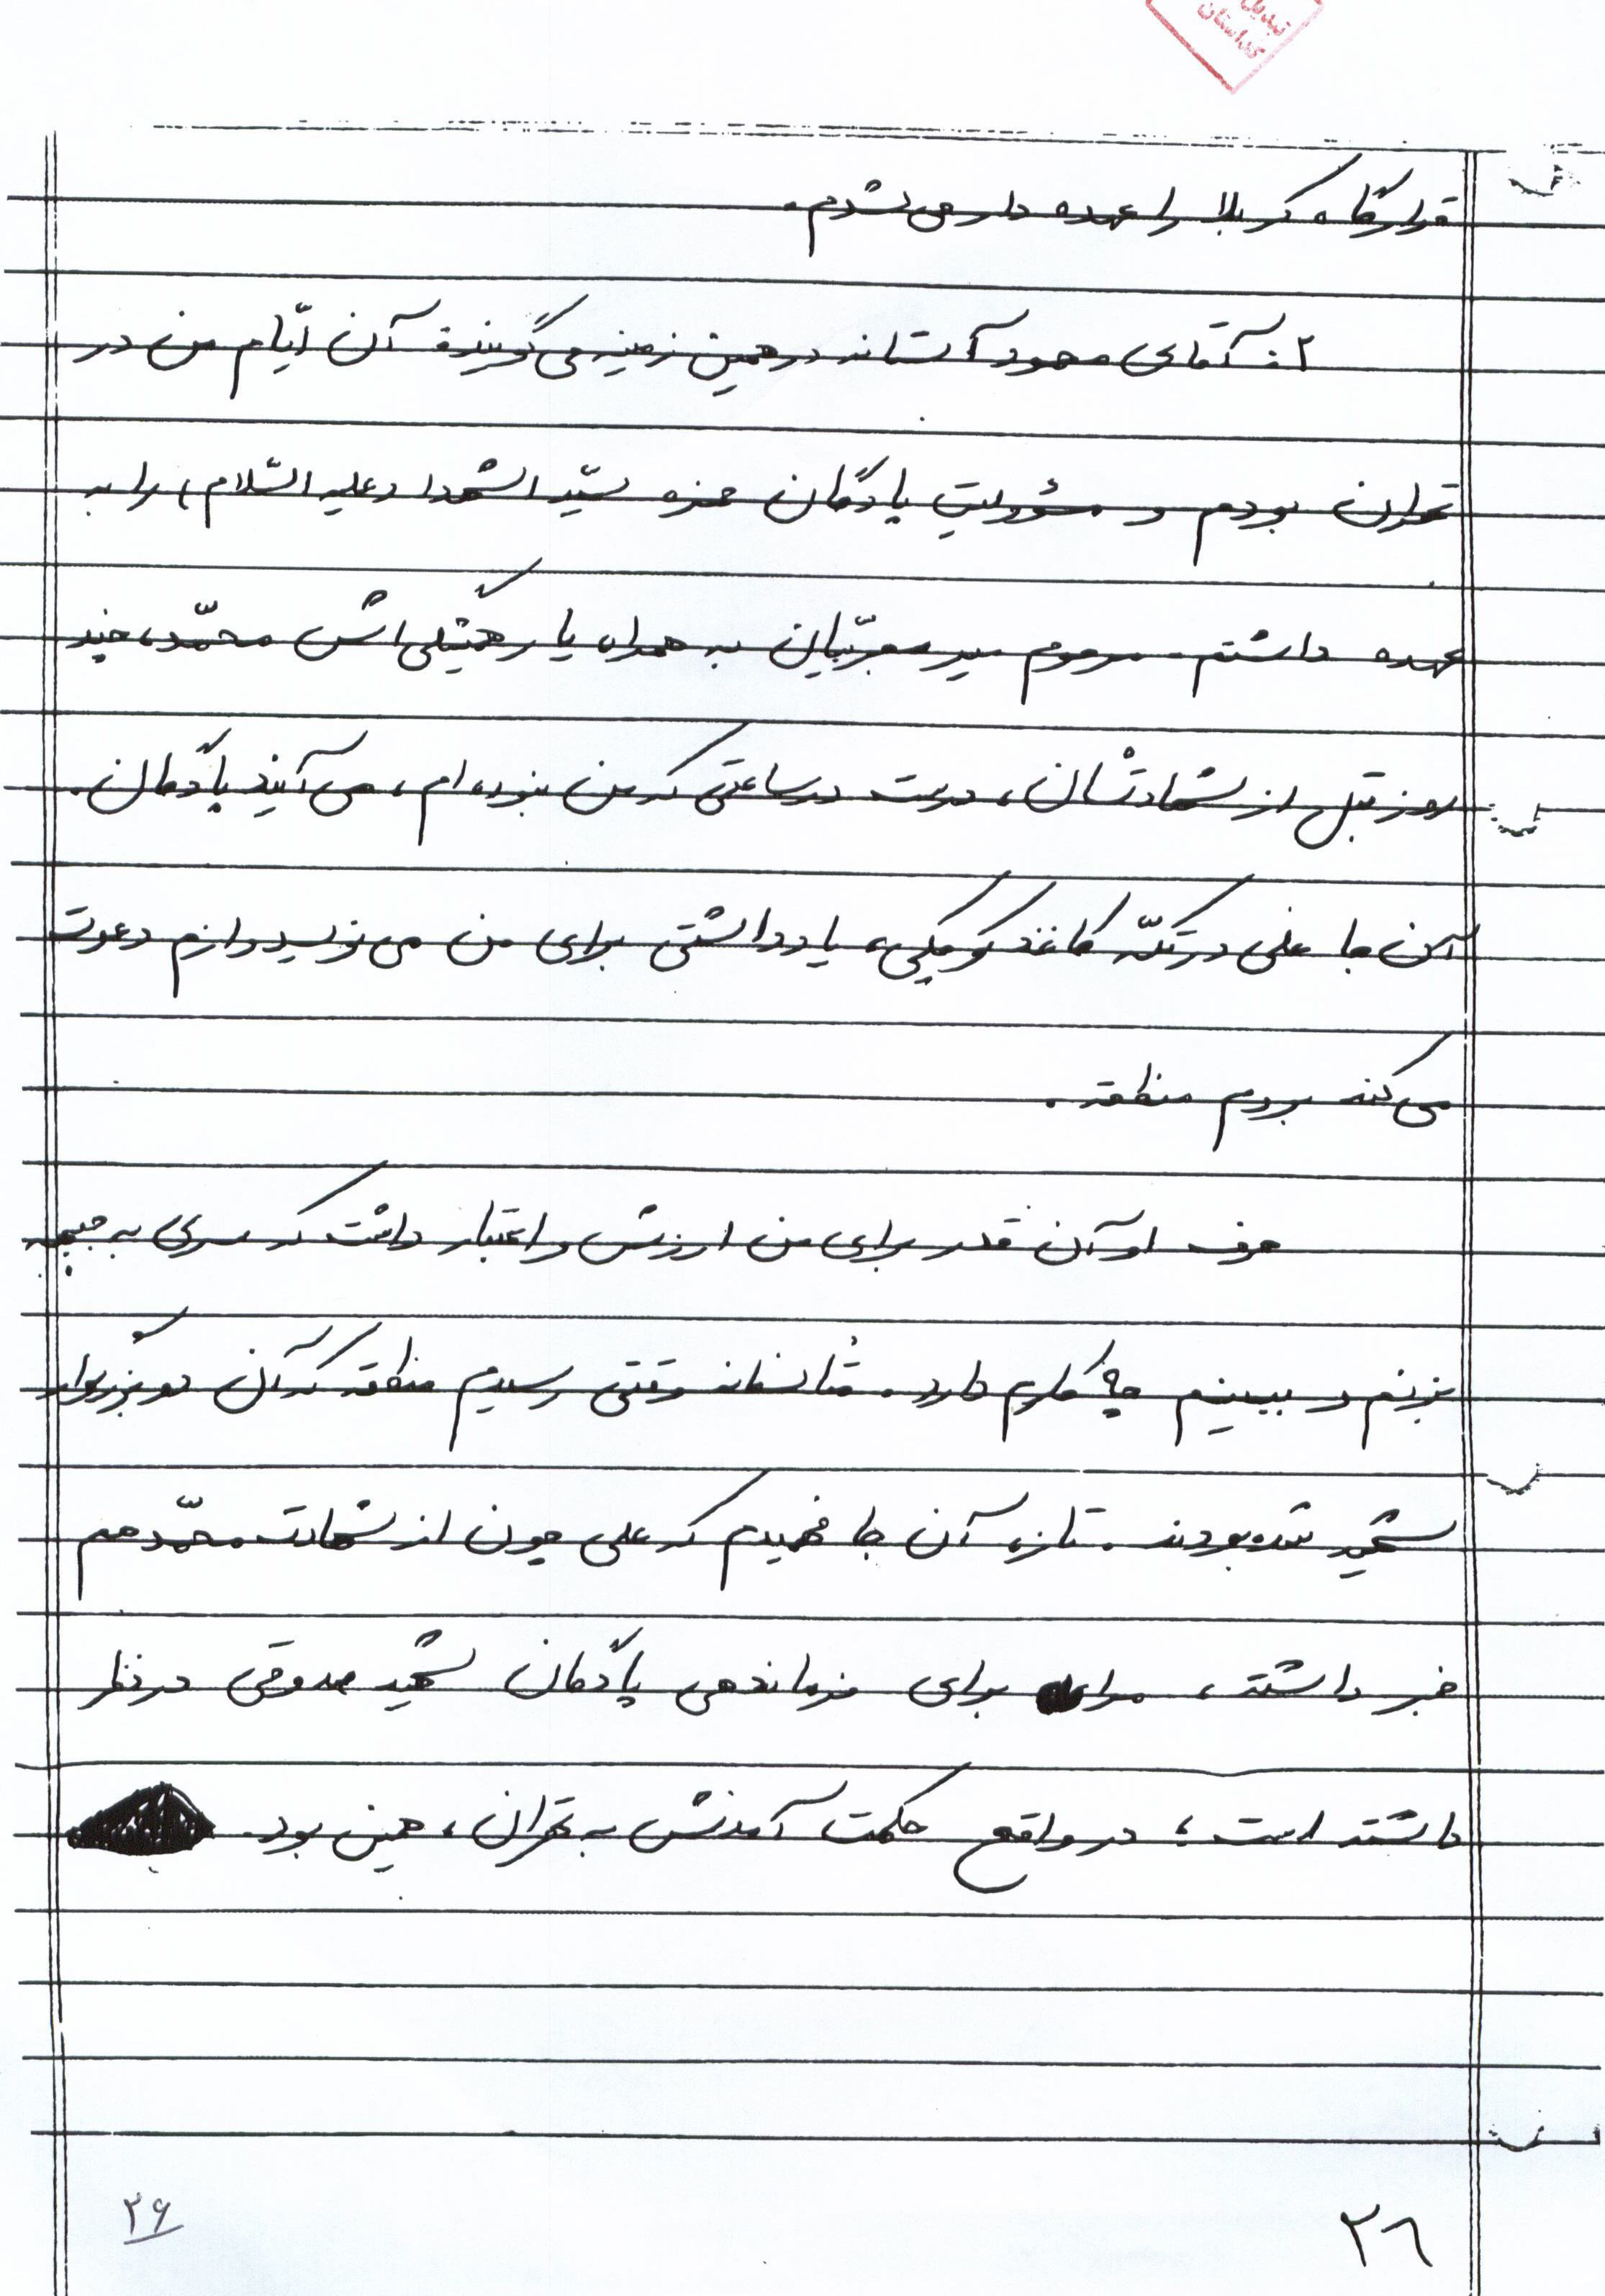 تبدیل
کداستان
قرارگاه کربلا را عهده دار می شدم.
۲. آقای محمود آستانه در همین زمینه می گویند: آن ایّام من در
تهران بودم و مسؤولیت پادگان حمزه سیّد الشهدا (علیه السّلام) را به
عهده داشتم. مرحوم میر معربّیان به همراه یار همیشگی اش محمّد، چند
روز قبل از شهادتشان، درست در ساعتی که من نبوده ام، می آیند پادگان.
آن جا علی در تکّه کاغذ کوچکی، یادداشتی برای من می نویسد و ازم دعوت
می کند بروم منطقه.
حرف او آن قدر برای من ارزش و اعتبار داشت که سری به جبهه
بزنم و ببینم چه کارم دارد. متأسفانه وقتی رسیدم منطقه که آن دو بزرگوار
شهید شده بودند. تازه آن جا فهمیدم که علی چون از شهادت محمّد هم
خبر داشته، مرا برای فرماندهی پادگان شهید صدوقی در نظر
داشته است؛ در واقع حکمت آمدنش به تهران، همین بود.
۲۶
۲۶